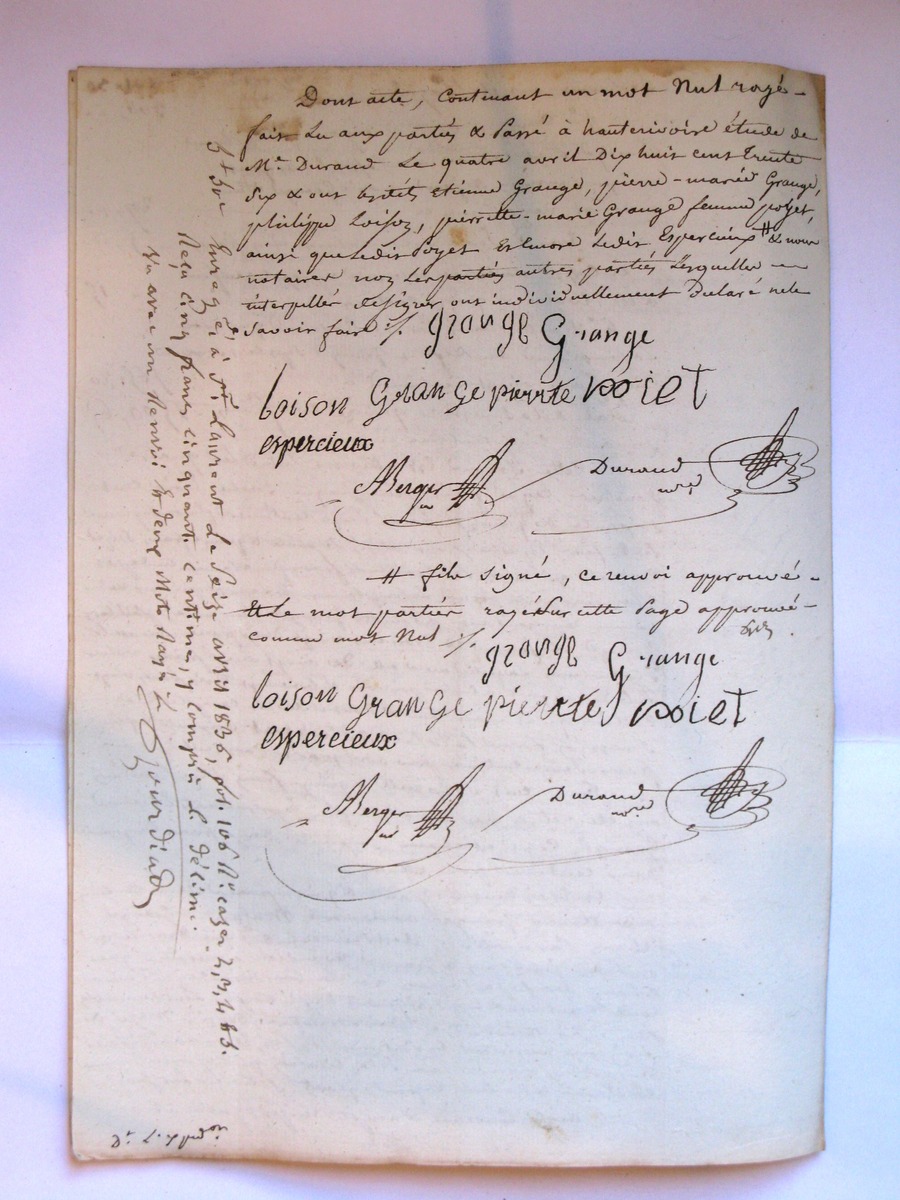 Dont acte, Contenant un mot Nul rayé -
fait Lu aux parties & Passé à hauterivoire étude de
Me. Durand Le quatre avril Dix huit cent trente
six & ont signé Etienne Grange, pierre-marie Grange,
philippe Loison, pierrette-marie Grange femme poyet,
ainsi que ledit Poyet Encore Ledit Espercieux # & nous
notaires non les parties autres parties Lesquelles -
interpellés de signer ont individuellement Déclaré ne le
Savoir faire ./. grange Grange
loison Grange pierrte poiet
espercieux
ABerger Durand
not.re
# fils signé, ce renvoi approuvé -
Et Le mot parties rayé Sur cette Page approuvé -
comme mot Nul ./. grange Grange
loison Grange pierrte poiet
espercieux
ABerger Durand
not.re
Enregé à St Laurent Le Seize avril 1836, fol. 106 Ro. cases 2, 3, 4 & 5.
Reçu cinq francs cinquante centimes, y compris le décime.
un renvoi & deux Mots Rayés